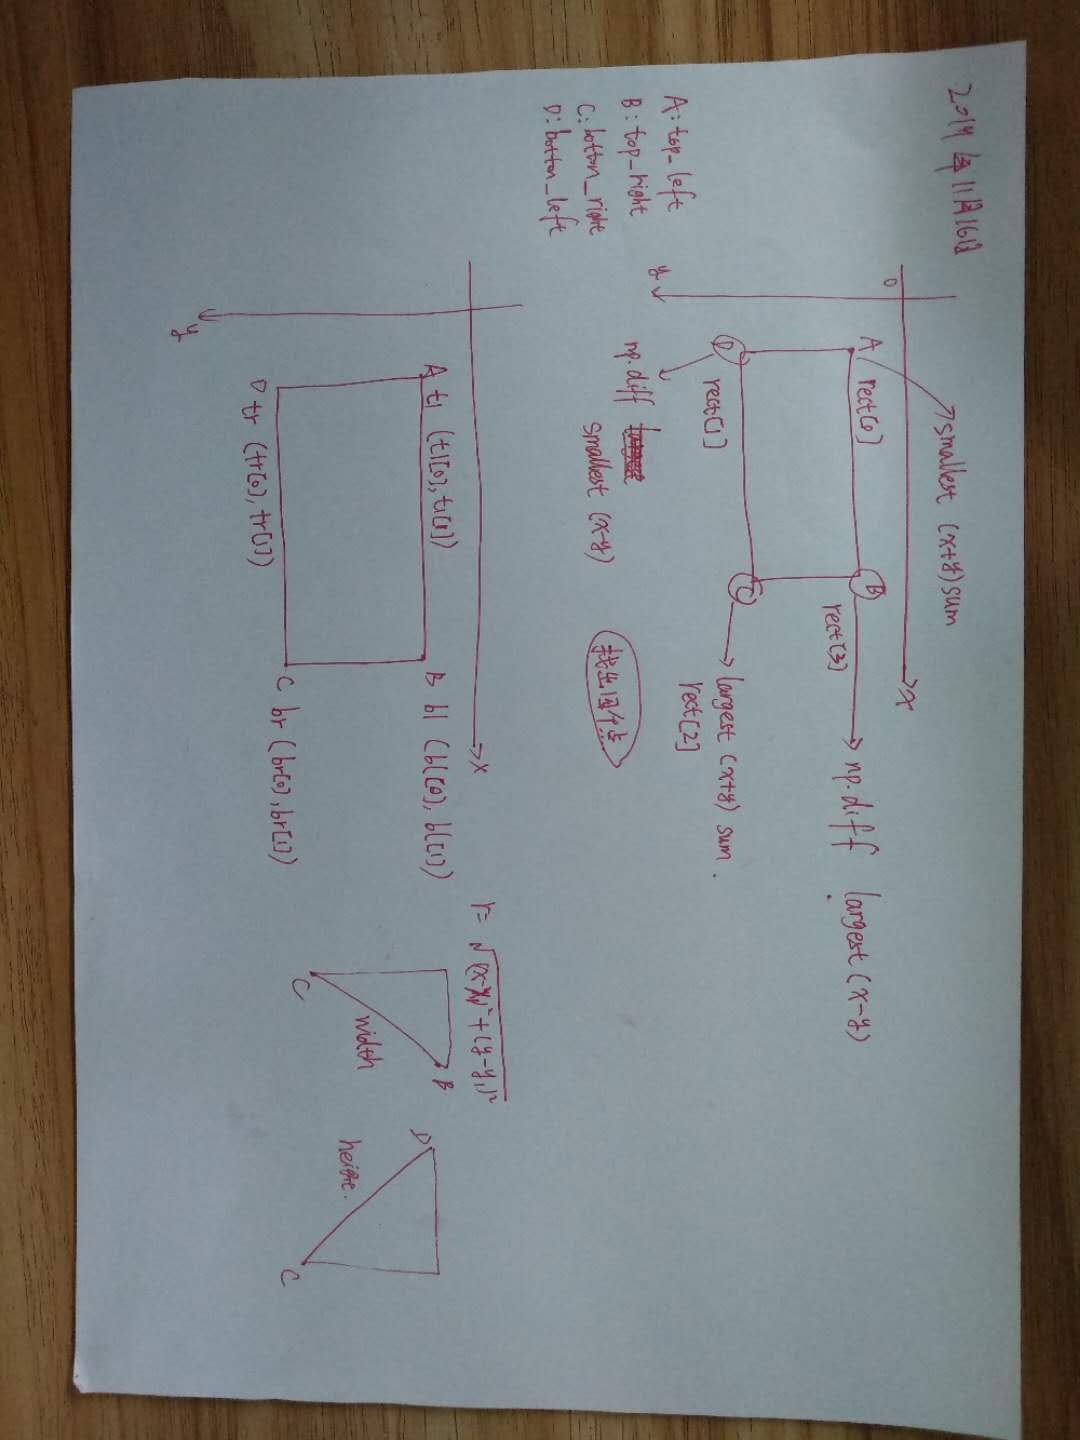 2019年11月16日
A: top_left
B: top_right
C: bottom_right
D: bottom_left
0
x
y
A
rect[0]
smallest (x+y) sum
B
rect[3]
np.diff largest (x-y)
D
rect[1]
np.diff
smallest (x-y)
C
largest (x+y) sum.
rect[2]
找出四个点
x
y
A tl (tl[0], tl[1])
B bl (bl[0], bl[1])
D tr (tr[0], tr[1])
C br (br[0], br[1])
r= √(x-x₁)²+(y-y₁)²
B
width
C
D
height.
C